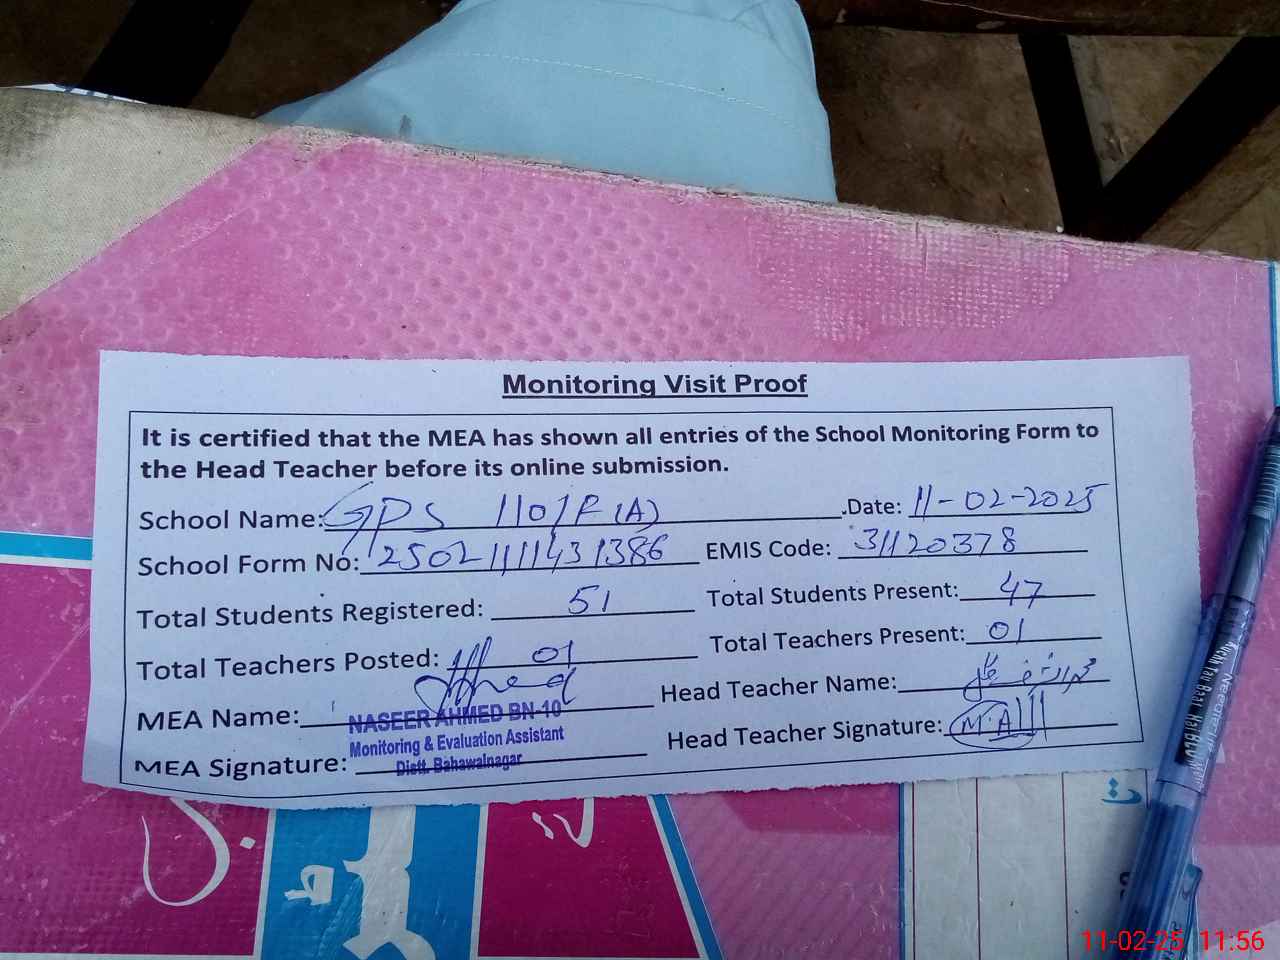 Monitoring Visit Proof
It is certified that the MEA has shown all entries of the School Monitoring Form to
the Head Teacher before its online submission.
School Name: GPS 110/F(A) .Date: 11-02-2025
School Form No: EMIS Code: 31120378
Total Students Registered: 51 Total Students Present: 47
Total Teachers Posted: 01 Total Teachers Present: 01
MEA Name: NASEER AHMED BN-10 Head Teacher Name:
Monitoring & Evaluation Assistant
MEA Signature: Distt. Bahawalnagar Head Teacher Signature: M.A
11-02-25 11:56